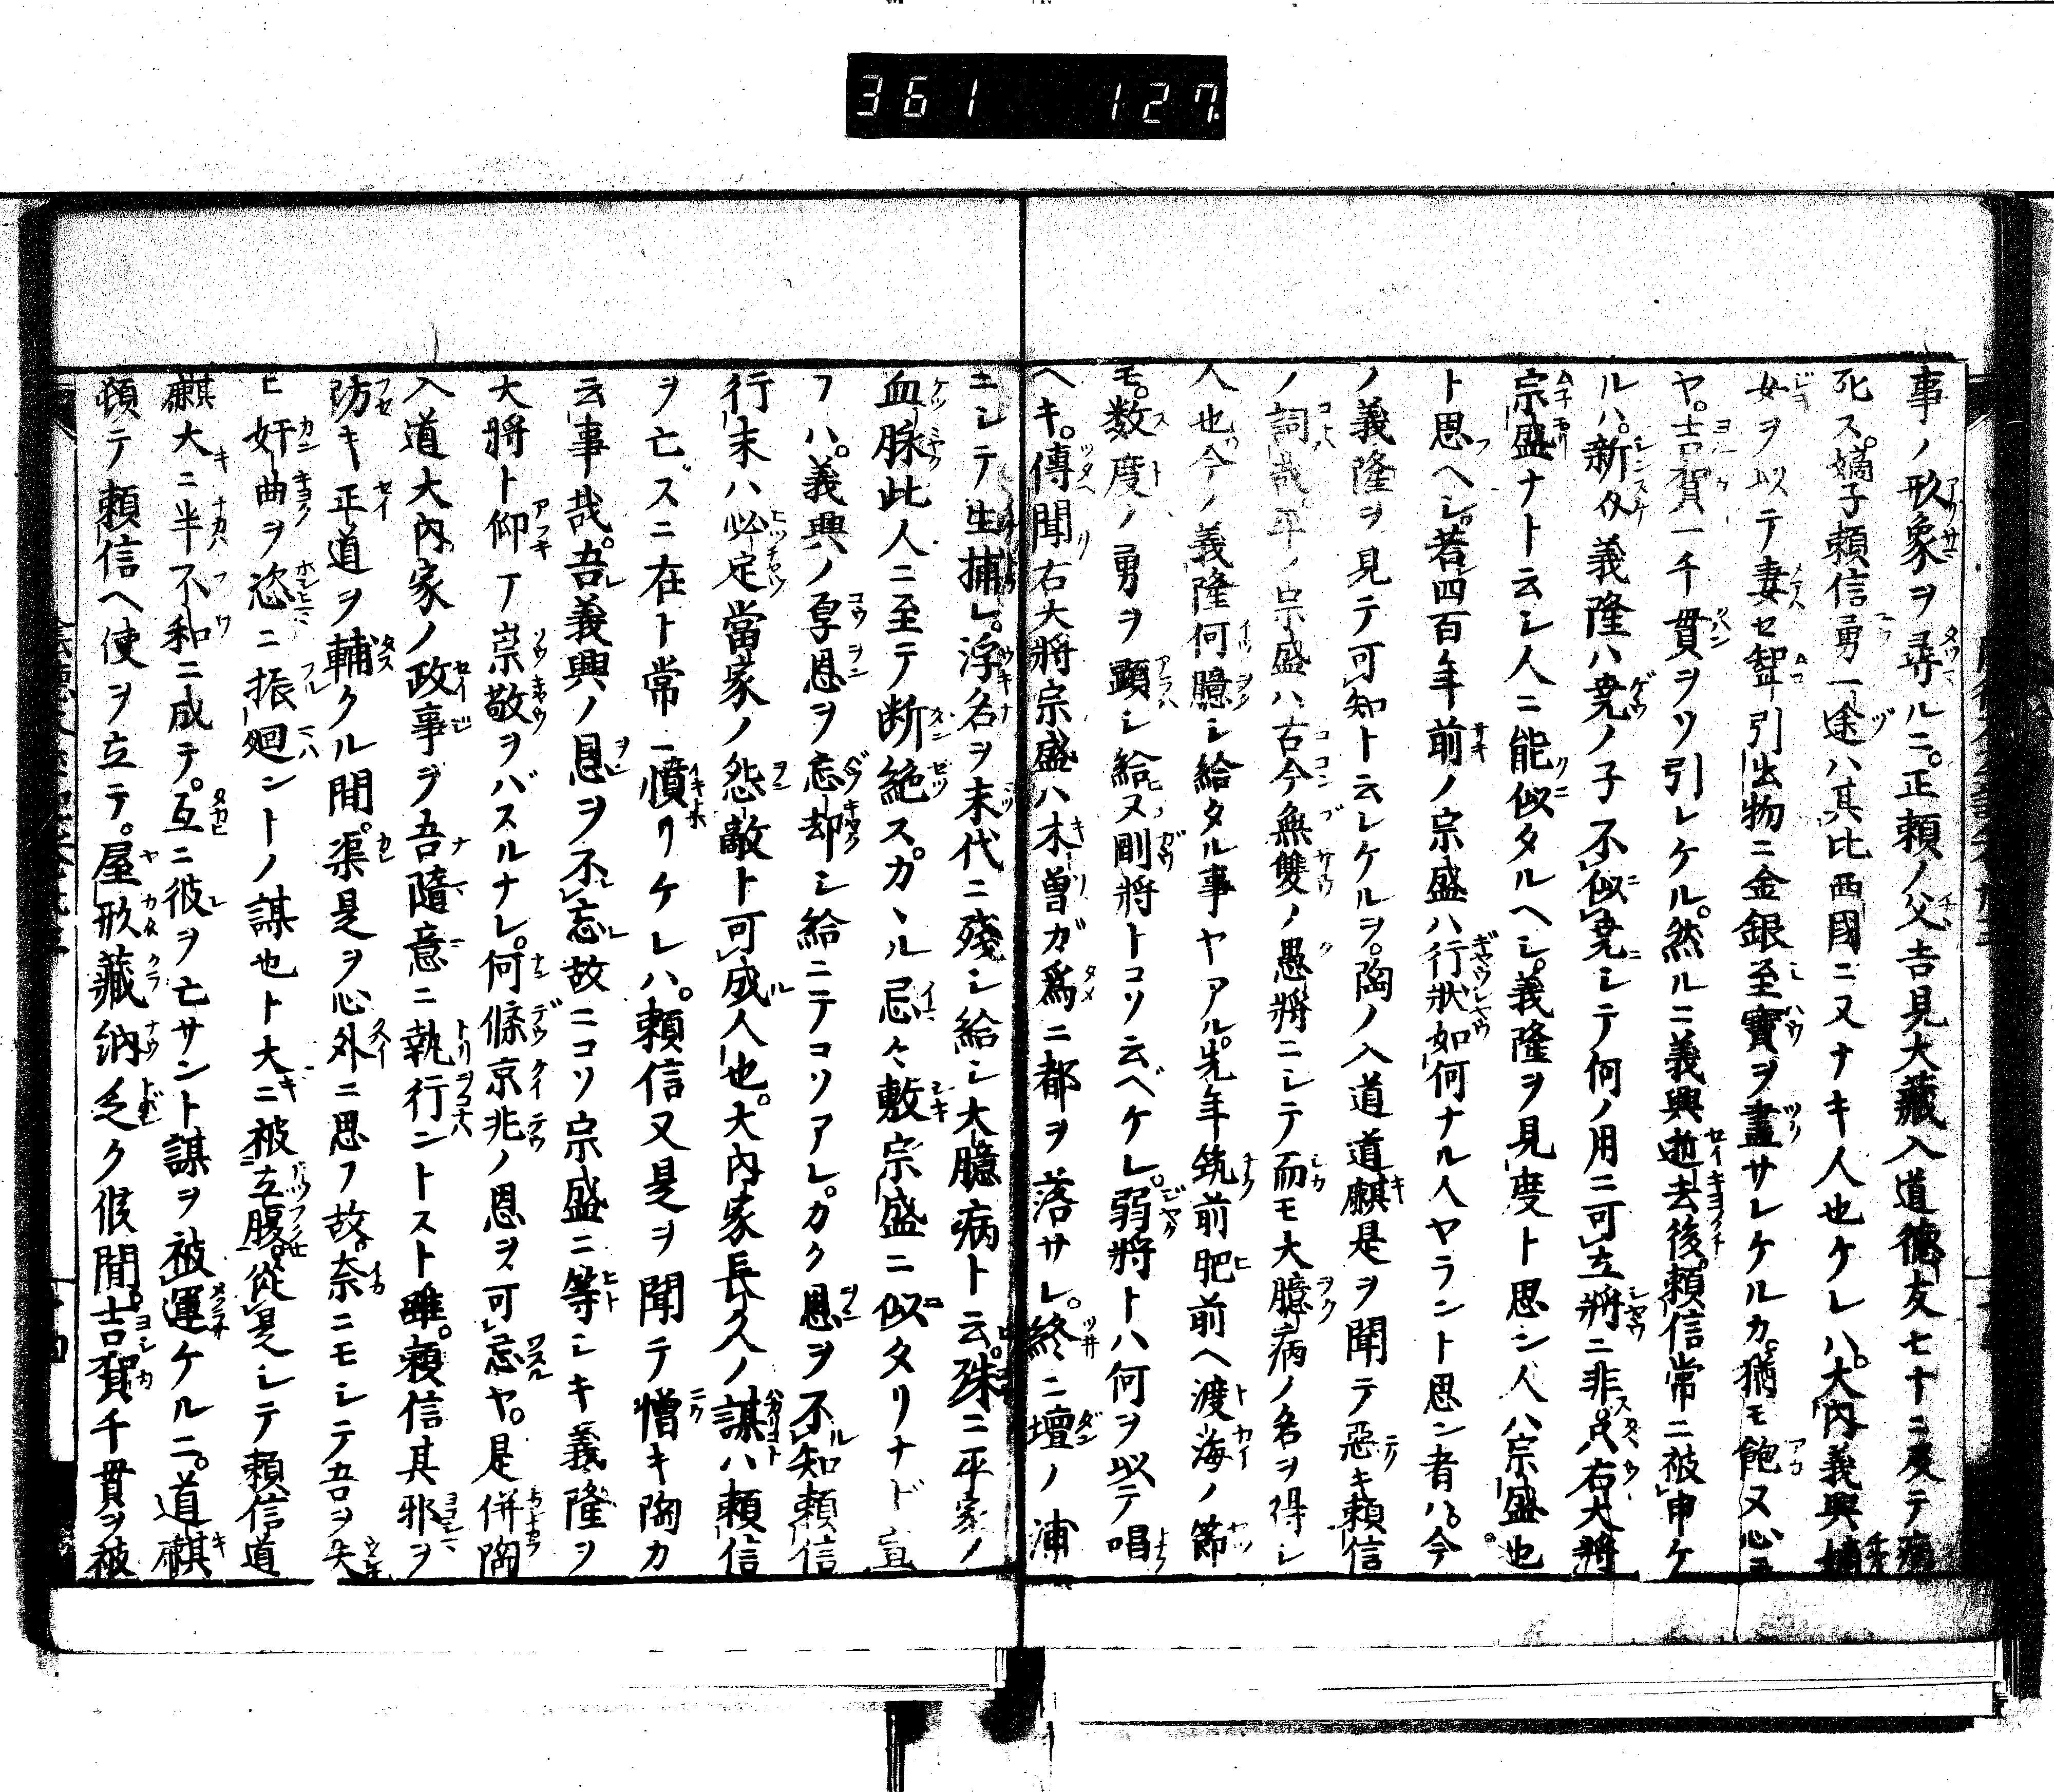 361 127
事ノ形象ヲ尋ルニ。正頼ノ父吉見大藏入道德友七十ニ及テ病
死ス。嫡子頼信勇一途ハ其比西國ニ又ナキ人也ケレハ。大内義興嫡
女ヲ以テ妻セ聟引出物ニ金銀至寶ヲ盡サレケルカ。猶モ飽ヌ心ニ
ヤ。吉賀一千貫ヲソ引レケル。然ルニ義興逝去後。頼信常ニ被申ケ
ルハ。新介義隆ハ尭ノ子不似尭シテ何ノ用ニ可立將ニ非只右大將
宗盛ナト云シ人ニ能似タルヘシ。義隆ヲ見度ト思シ人ハ宗盛也
ト思ヘシ。若四百年前ノ宗盛ハ行状如何ナル人ヤラント思シ者ハ。今
ノ義隆ヲ見テ可知ト云レケルヲ。陶ノ入道道麒是ヲ聞テ惡キ頼信
ノ詞哉平ノ宗盛ハ古今無雙ノ愚將ニシテ而モ大臆病ノ名ヲ得シ
人也今ノ義隆何臆シ給タル事ヤアル。先年筑前肥前ヘ渡海ノ節
モ。数度ノ勇ヲ顕シ給ヌ剛將トコソ云ベケレ。弱將トハ何ヲ以テ唱
ヘキ。傳聞右大將宗盛ハ木曽ガ爲ニ都ヲ落サレ。終ニ壇ノ浦
ニシテ生捕レ。浮名ヲ末代ニ殘シ給シ大臆病ト云。殊ニ平家ノ
血脉此人ニ至テ断絶スカヽル忌々敷宗盛ニ似タリナド宣
フハ。義興ノ厚恩ヲ忘却シ給ニテコソアレ。カク恩ヲ不知頼信
行末ハ必定當家ノ怨敵ト可成人也。大内家長久ノ謀ハ頼信
ヲ亡スニ在ト常ニ憤リケレハ。頼信又是ヲ聞テ憎キ陶カ
云事哉。吾義興ノ恩ヲ不忘故ニコソ宗盛ニ等シキ義隆ヲ
大將ト仰テ宗敬ヲバスルナレ。何條京兆ノ恩ヲ可忘ヤ。是併陶
入道大内家ノ政事ヲ吾隨意ニ執行ントスト雖。頼信其邪ヲ
防キ正道ヲ輔クル間。渠是ヲ心外ニ思フ故。奈ニモシテ吾ヲ失
ヒ奸曲ヲ恣ニ振廻ントノ謀也ト大ニ被立腹。從是シテ頼信道
麒大ニ半不和ニ成テ。互ニ彼ヲ亡サント謀ヲ被運ケルニ。道麒
頓テ頼信ヘ使ヲ立テ。屋形藏納乏ク候間。吉賀千貫ヲ被